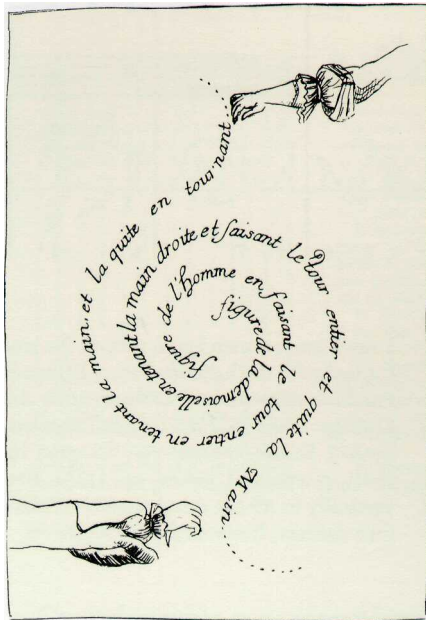 figure de l'homme en faisant le tour entier en tenant la main, et la quite en tournant......
figure de la demoiselle en tenant la main droite et faisant le tour entier et quite la Main......